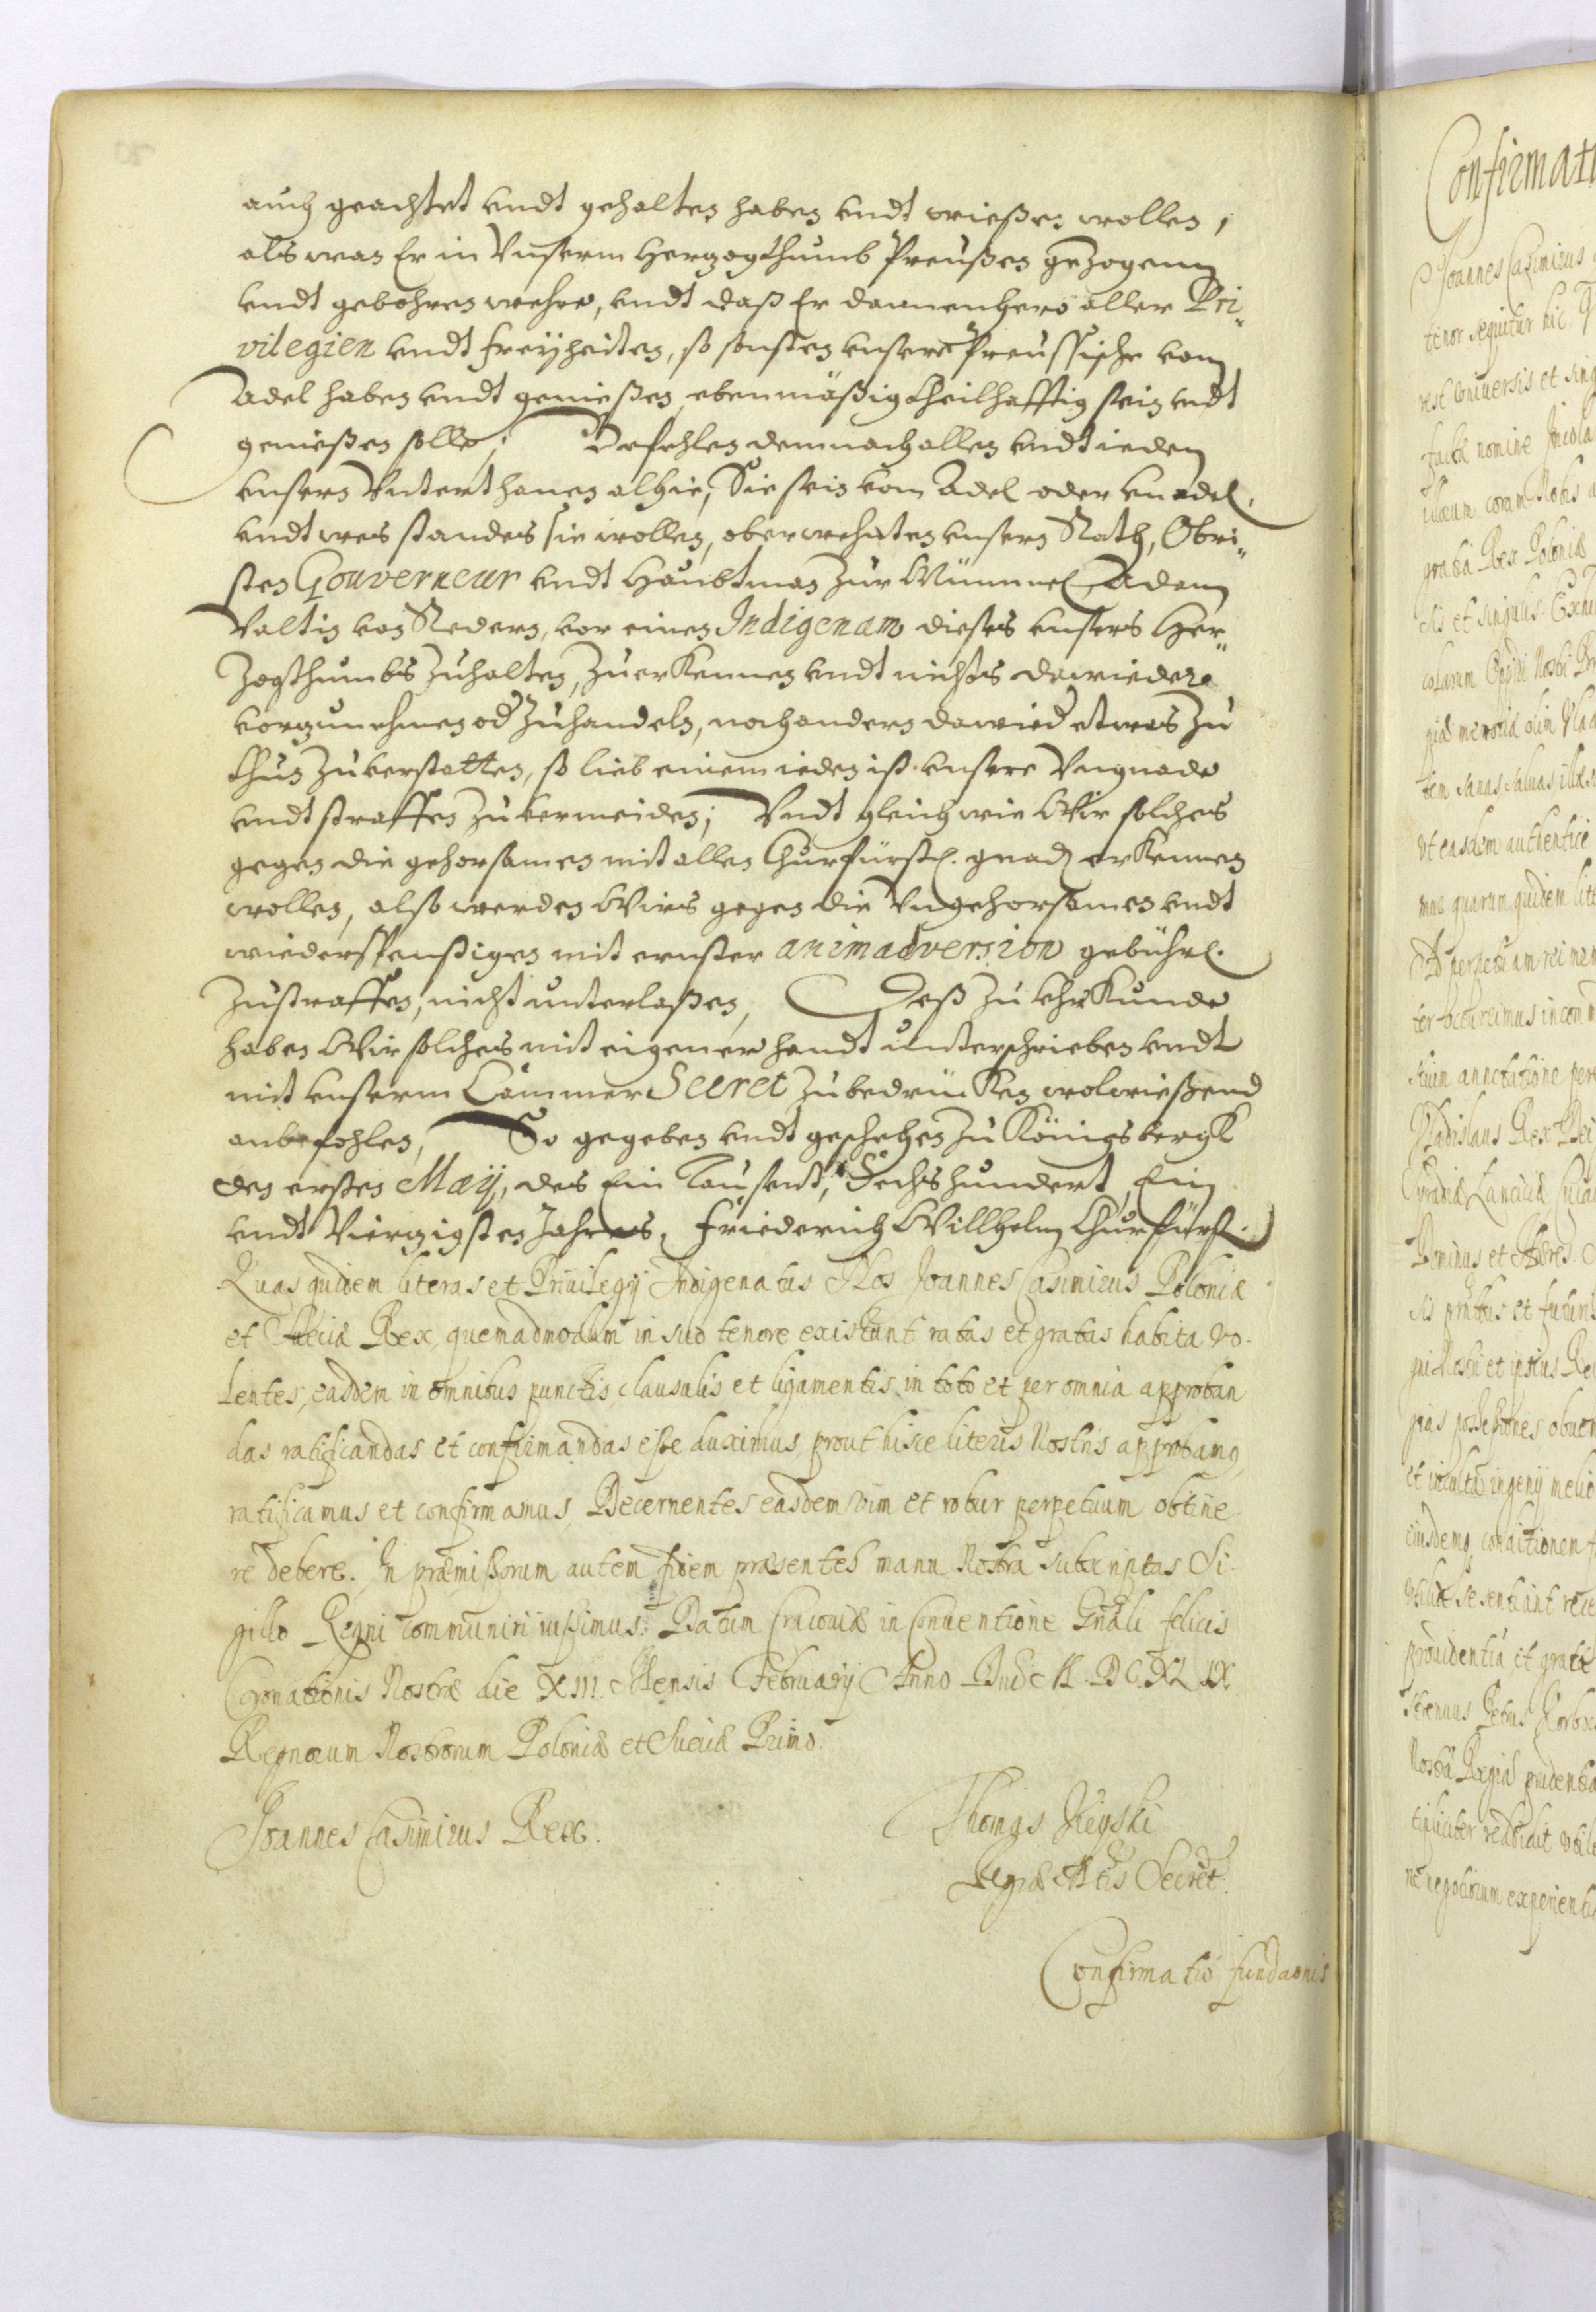 auch geachtet undt gehalten haben undt wießen wollen,
als wan Er in Unserm Herzogthumb Preußen gezogenn
undt gebohren wehre, undt daß Er dannenhero aller Pri„
vilegien undt freÿheiten, so sonsten unsere Preussische vom
Adel haben undt genießen, ebenmäßig theilhafftig sein undt
genießen solle; Befehlen demnach allen undt ieden
unsern Unterthanen alhie, Sie sein vom Adel oder unadel,
undt wes standes sie wollen, oberwehnten unsern Rath, Obri„
sten Gouverneur undt Haubtman zur Mümmel, Adam
Valtin von Redern, vor einen Indigenam dieses unsers Her„
zogthumbs zuhalten, zuerkennen undt nichts dawiedere
vorzunehmen od zuhandeln, noch andern dawied etwas zu
thun zuverstatten, so lieb einem ieden ist unsere Ungnade
undt straffen zuvermeiden; Undt gleich wie Wir solches
gegen die gehorsamen mit allen Churfürstl. gnad erkennen
wollen, also werden Wirs gegen die Ungehorsamen undt
wiederspenstigen mit ernster animadversion gebührl.
zustraffen, nicht unterlaßen, Deß zu Uhrkunde
haben Wir solches mit eigener handt unterschrieben undt
mit unserm Cammer Secret zubedrücken wolwießend
anbefohlen, So gegeben undt geschehen zu Königsbergk
den ersten Maÿ, des Ein Tausent, Sechshundert, Ein
undt Vierzigsten Jahres, Friederich Willhelm Churfürst.
Quas quidem literas et Priuilegij Indigenatus Nos Joannes Casimirus Poloniæ
et Sueciæ Rex, quemadmodum in suo tenore existunt ratas et gratas habita vo-
lentes, easdem in omnibus punctis, clausulis et ligamentis, in toto et per omnia approban
das ratificandas et confirmandas esse duximus, prout hisce literis Nostris approbamq,
ratificamus et confirmamus, Decernentes easdem vim et robur perpetuum obtine-
re debere. In præmissorum autem fidem præsentes manu Nostra subscriptas Si-
gillo Regni communiri iussimus. Datum Cracouiæ in Conuentione Gnãli felicis
Coronationis Nostræ die XIII. Mensis February Anno Dni M. DC. XLIX.
Regnorum Nostrorum Poloniæ et Sueciæ Primo.
Joannes Casimirus Rex.
Thomas Vieyski
Regiæ Mtis Secret.
Confirmatio fundaonis
Confirmati
Joannes Casimirus
tenor sequitur hic.
est Vniuersis et sing
nomine Incola
coram Nobis
gratia Rex Poloniæ
et singulis
Oppidi Nostri
memoriæ olim Vla
sanas saluas illæs
vt easdem authentice
quarum quidem lit
Ad perpetuam rei mem
annotatione per
Vladislaus Rex Dei
Cuiauiæ
Dominus et Hæres
et futuris
Nostri et ipsius Re
possessiones obuen
et ingenij melio
eiusdemq conditionem
se sentiant
prouidentia et grata
Strenuus Petrus
Nostra Regia prudentia
reddidit vtil
negotiorum experientia